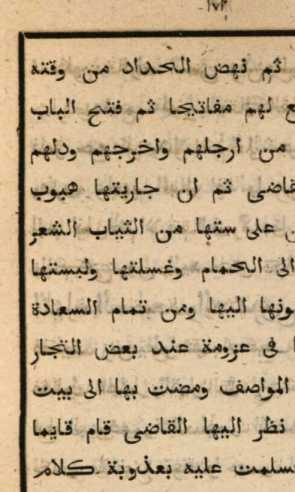 ١٧٢
ثم نهض الحداد من وقته
لهم مفاتيحا ثم فتح الباب
من ارجلهم واخرجهم ودلهم
ثم ان جاريتها هبوب
على ستها من الثياب الشعر
الى الحمام وغسلتها ولبستها
اليها ومن تمام السعادة
فى عزومة عند بعض التجار
المواصف ومضت بها الى بيت
نظر اليها القاضى قام قايما
عليه بعذوبة كلام